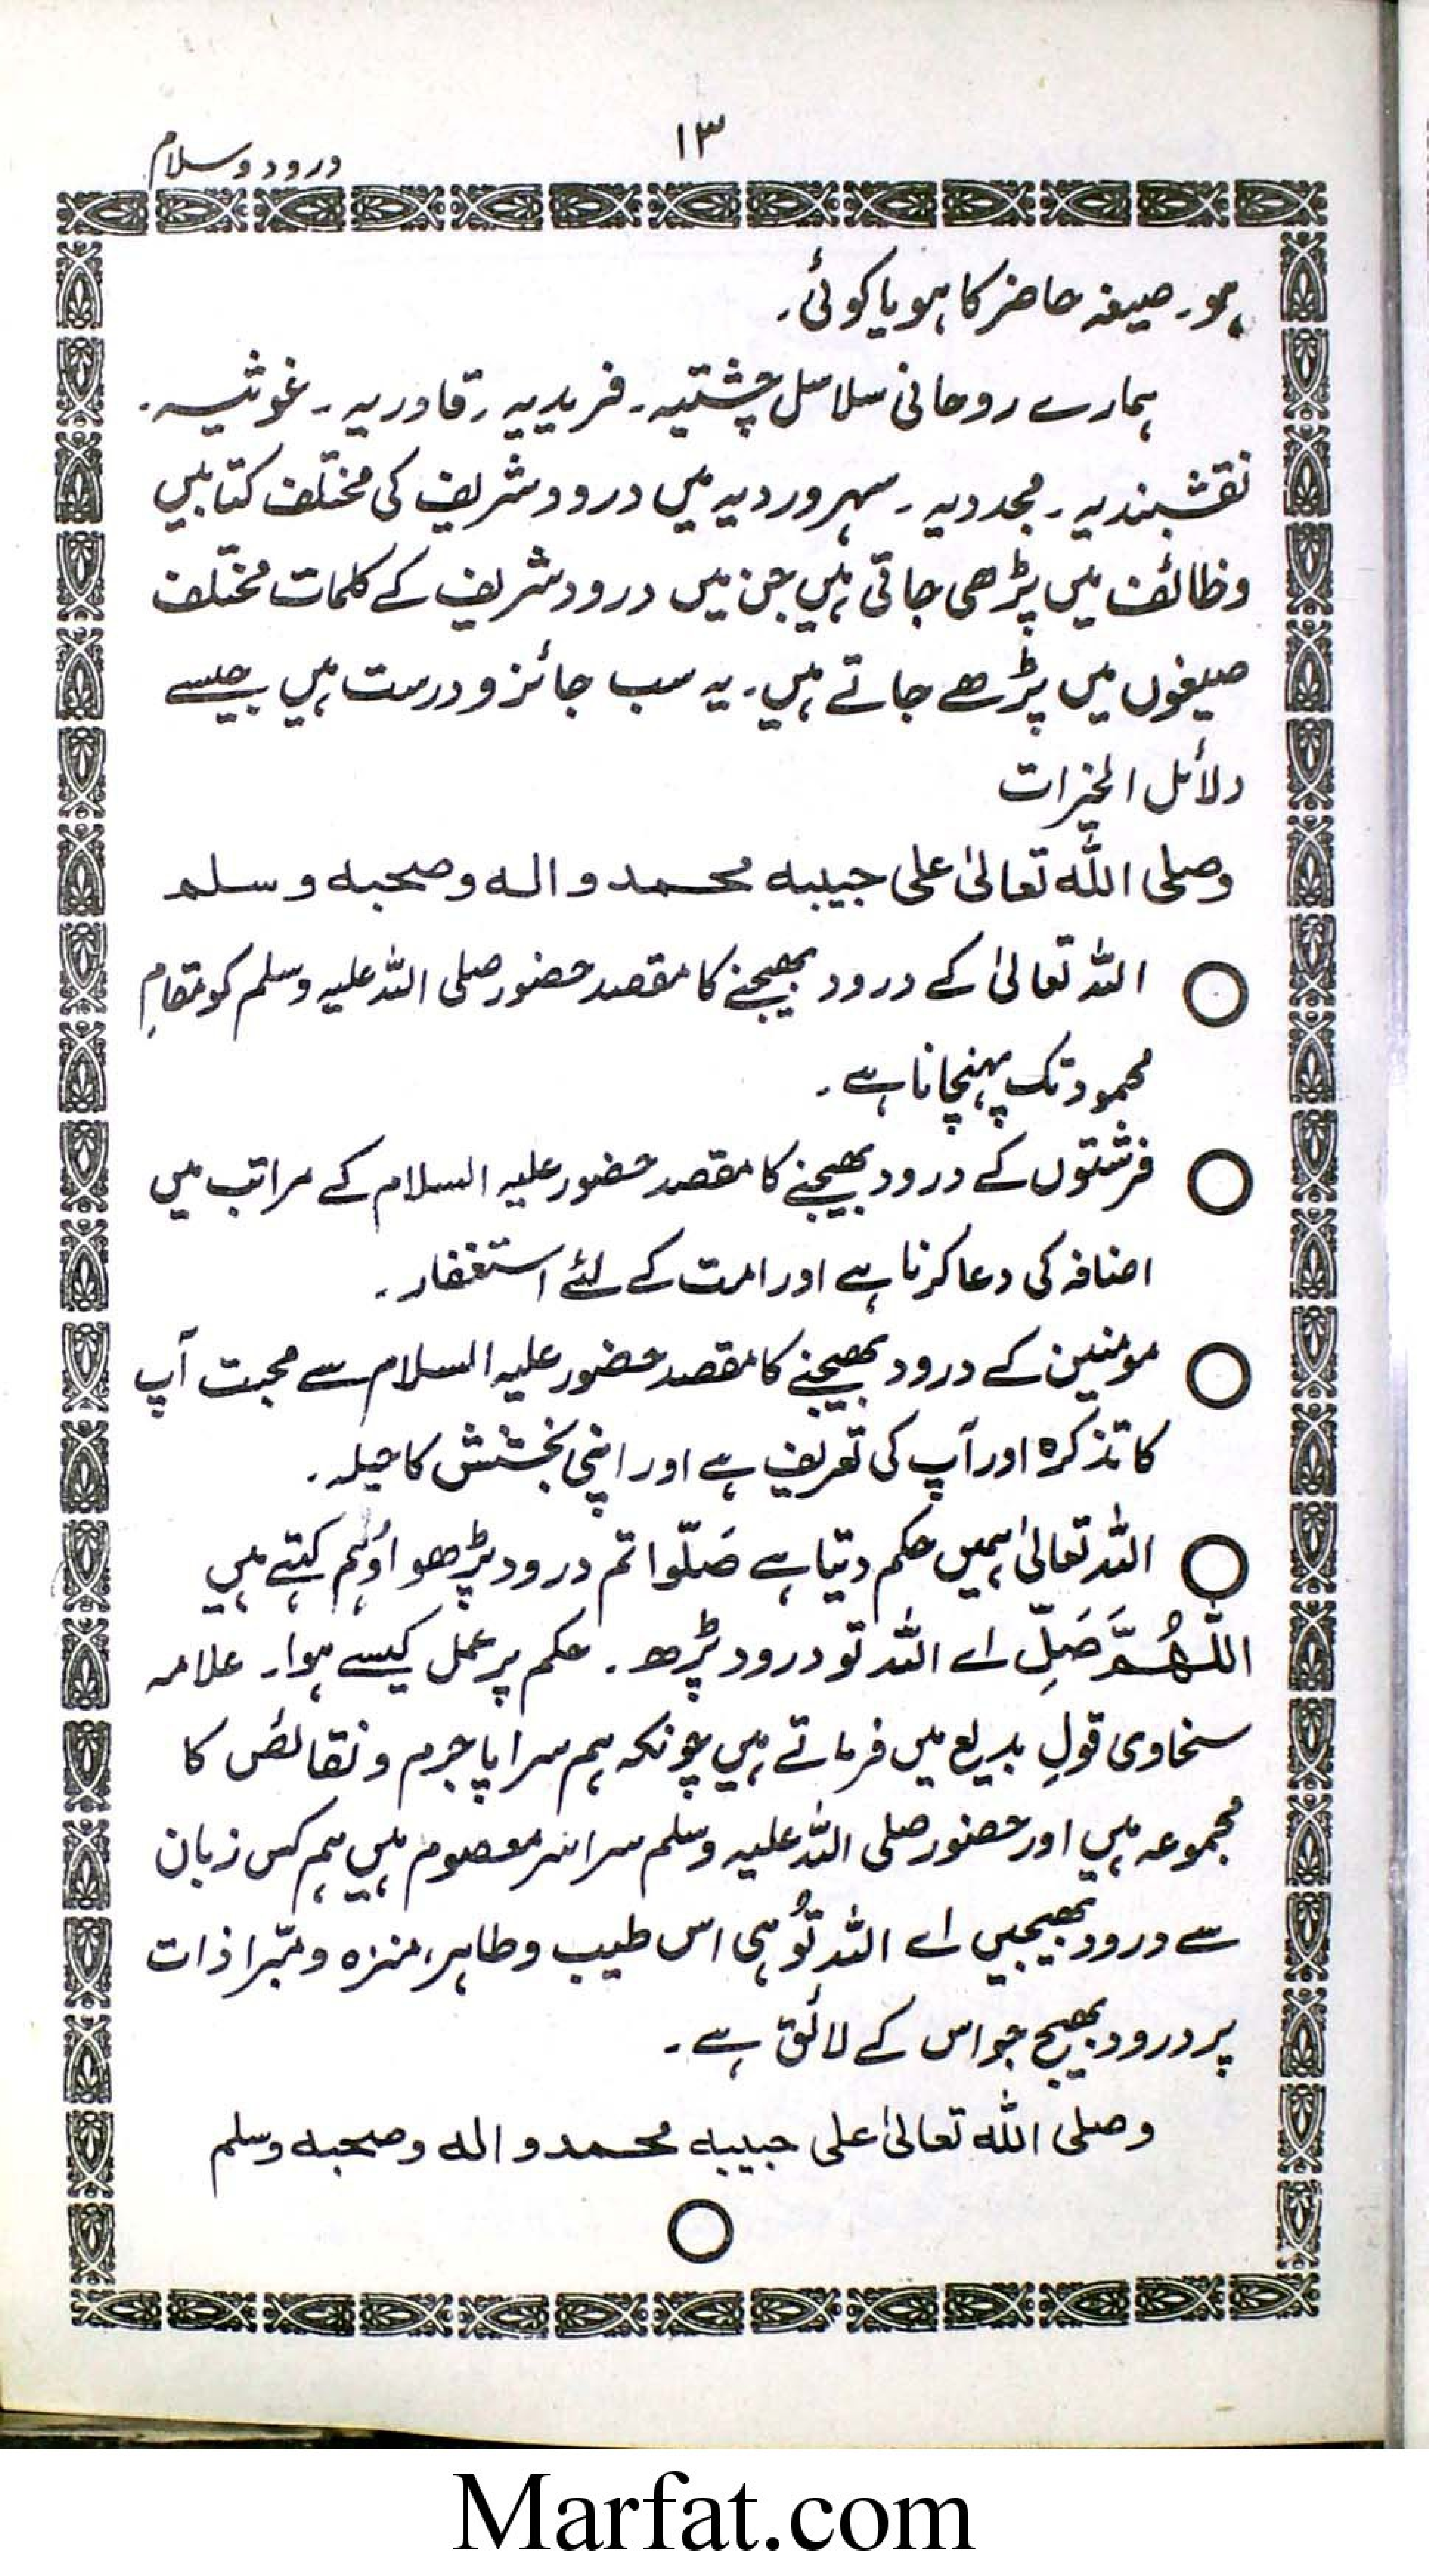 ۱۳
درود و سلام
ہو۔ صیغہ حاضر کا ہو یا کوئی۔
ہمارے روحانی سلاسل چشتیہ۔ فریدیہ۔ قادریہ۔ غوثیہ۔
نقشبندیہ۔ مجددیہ۔ سہروردیہ میں درود شریف کی مختلف کتابیں
وظائف میں پڑھی جاتی ہیں جن میں درود شریف کے کلمات مختلف
صیغوں میں پڑھے جاتے ہیں۔ یہ سب جائز و درست ہیں جیسے
دلائل الخیرات
وصلی اللہ تعالیٰ علی حبیبہ محمد و الہ وصحبہ وسلم
○ اللہ تعالیٰ کے درود بھیجنے کا مقصد حضور صلی اللہ علیہ وسلم کو مقامِ
محمود تک پہنچانا ہے۔
○ فرشتوں کے درود بھیجنے کا مقصد حضور علیہ السلام کے مراتب میں
اضافہ کی دعا کرنا ہے اور امت کے لئے استغفار۔
○ مومنین کے درود بھیجنے کا مقصد حضور علیہ السلام سے محبت آپ
کا تذکرہ اور آپ کی تعریف ہے اور اپنی بخشش کا حیلہ۔
○ اللہ تعالیٰ ہمیں حکم دیتا ہے صَلّوا تم درود پڑھو اور ہم کہتے ہیں
اللّٰھُمَّ صَلِّ اے اللہ تو درود پڑھ۔ حکم پر عمل کیسے ہوا۔ علامہ
سخاوی قولِ بدیع میں فرماتے ہیں چونکہ ہم سراپا جرم و نقائص کا
مجموعہ ہیں اور حضور صلی اللہ علیہ وسلم سراسر معصوم ہیں ہم کس زبان
سے درود بھیجیں اے اللہ تُو ہی اس طیب و طاہر، منزہ و مبّرا ذات
پر درود بھیج جو اس کے لائق ہے۔
وصلی اللہ تعالیٰ علی حبیبہ محمد و الہ وصحبہ وسلم
○
Marfat.com